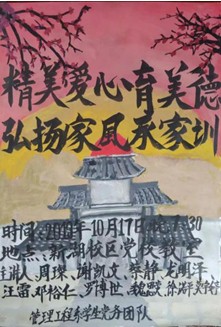 精美爱心育美德
弘扬家风承家训
时间:2018年10月17日晚7:30
地点:新湖校区党校教室
主讲人:周琛、谢凯文、柴静、龙明洋、
汪雷、邓裕仁、罗博世、魏
管理工程系学生党务团队